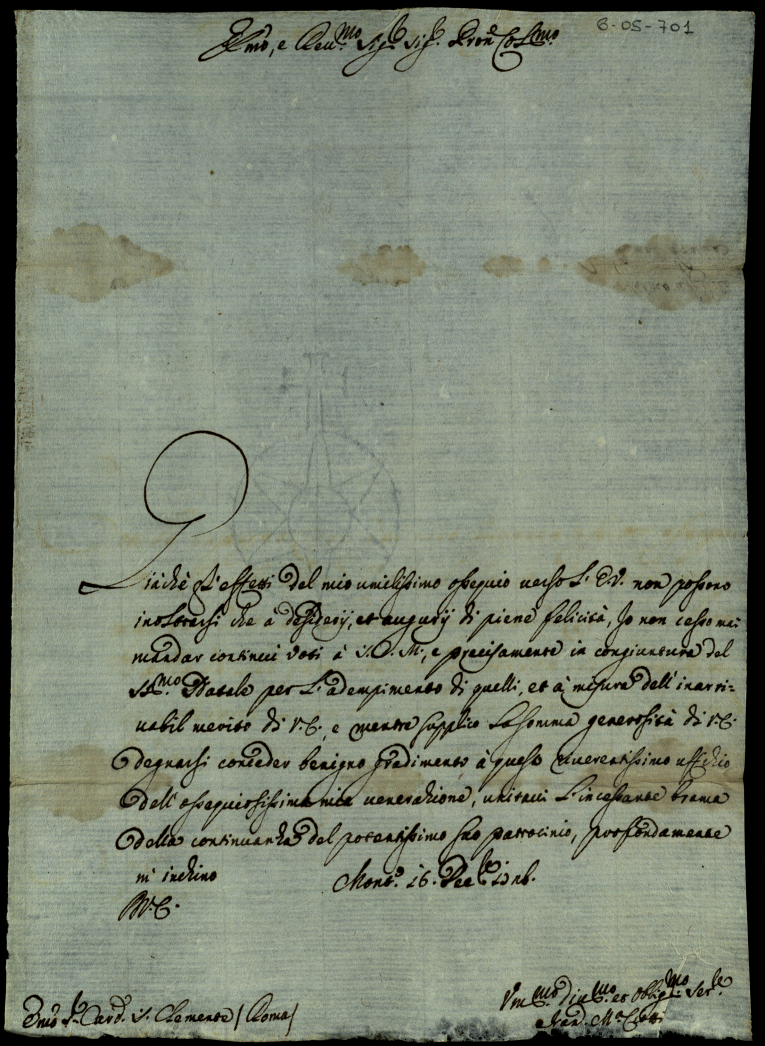 6-05-701
Emo, e Reu.mo Sig.r Sig.r Pron Col.mo
Giachè gl'effetti del mio umilissimo ossequio verso L'E.V. non possono
inoltrarsi che à desiderij, et augurij di piene felicità, Io non cesso mai
mandar continui voti à S.D.M., e precisamente in congiuntura del
SS.mo Natale per L'adempimento di quelli, et à misura dell'inarri-
uabil merito di V.E. e mentre supplico La somma generosità di V.E.
degnarsi conceder benigno gradimento à questo riuerentissimo uffizio
dell'ossequiosissima mia venerazione, unitavi L'incessante brama
della continuanza del potentissimo suo patrocinio, profondamente
m'inchino
Mont.o 16. Dec.bre
V.E.
Emo S.r Card. S. Clemente / Roma /
Vm.mo Diu.mo et Oblig.mo Ser.re
M.a